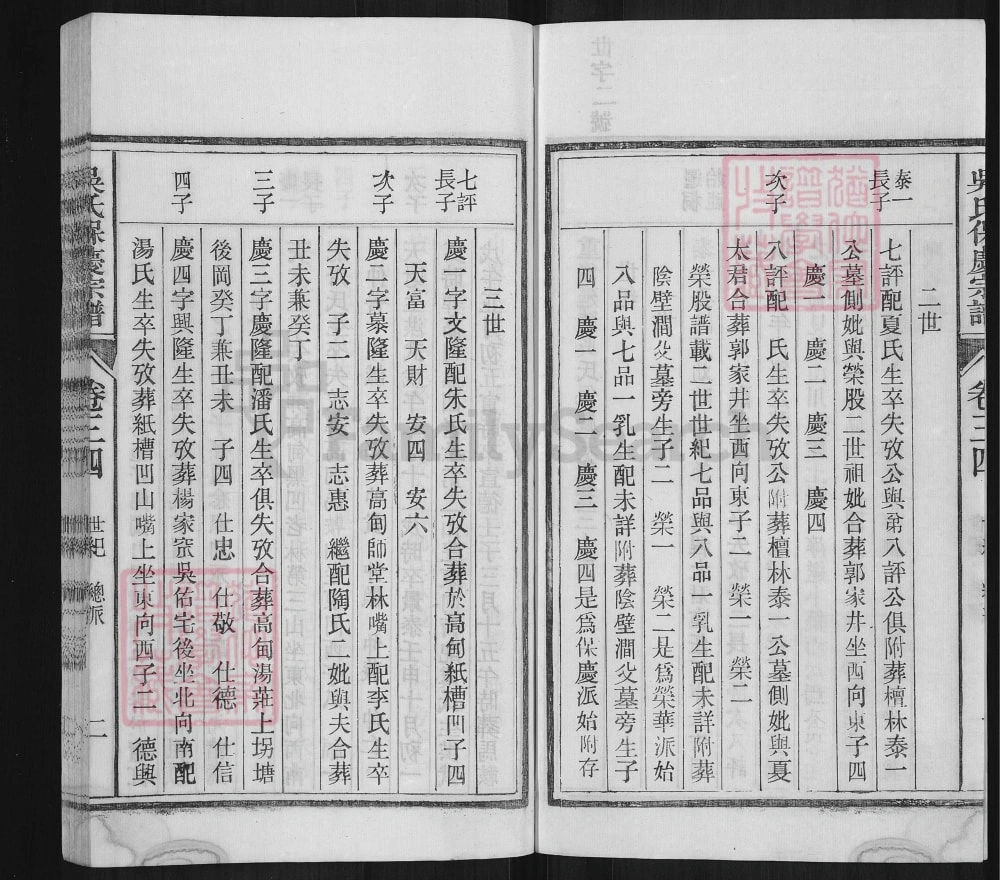 吳氏保慶宗譜 卷三四
二世
泰一長子 七評配夏氏生卒失攷公與弟八評公俱附葬檀林泰一
公墓側妣與榮股二世祖妣合葬郭家井坐西向東子四
慶一 慶二 慶三 慶四
次子 八評配 氏生卒失攷公附葬檀林泰一公墓側妣與夏
太君合葬郭家井坐西向東子二 榮一 榮二
榮股譜載二世世紀七品與八品一乳生配未詳附葬
陰壁澗父墓旁生子二 榮一 榮二是爲榮華派始
八品與七品一乳生配未詳附葬陰壁澗父墓旁生子
四 慶一 慶二 慶三 慶四是爲保慶派始附存
三世
七評長子 慶一字文隆配朱氏生卒失攷合葬於高甸紙槽凹子四
天富 天財 安四 安六
次子 慶二字慕隆生卒失攷葬高甸師堂林嘴上配李氏生卒
失攷 子二 志安 志惠 繼配陶氏二妣與夫合葬
丑未兼癸丁
三子 慶三字慶隆配潘氏生卒俱失攷合葬高甸湯莊上拐塘
後岡癸丁兼丑未 子四 仕忠 仕敬 仕德 仕信
四子 慶四字興隆生卒失攷葬楊家窊吳佑宅後坐北向南配
湯氏生卒失攷葬紙槽凹山嘴上坐東向西子二 德興
吳氏保慶宗譜 卷三四 世紀 總派 二